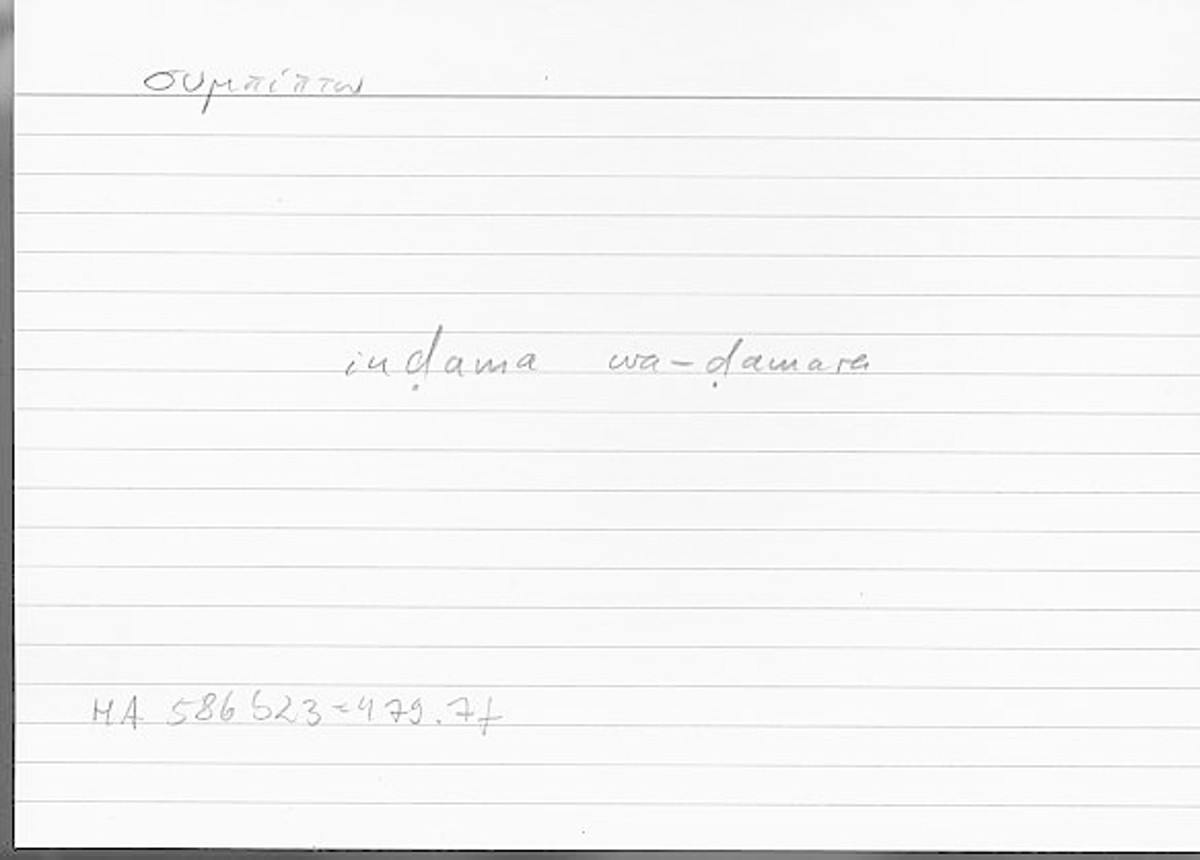 συμπίπτω
inḍama wa-ḍamara
HA 586b23=479.7f